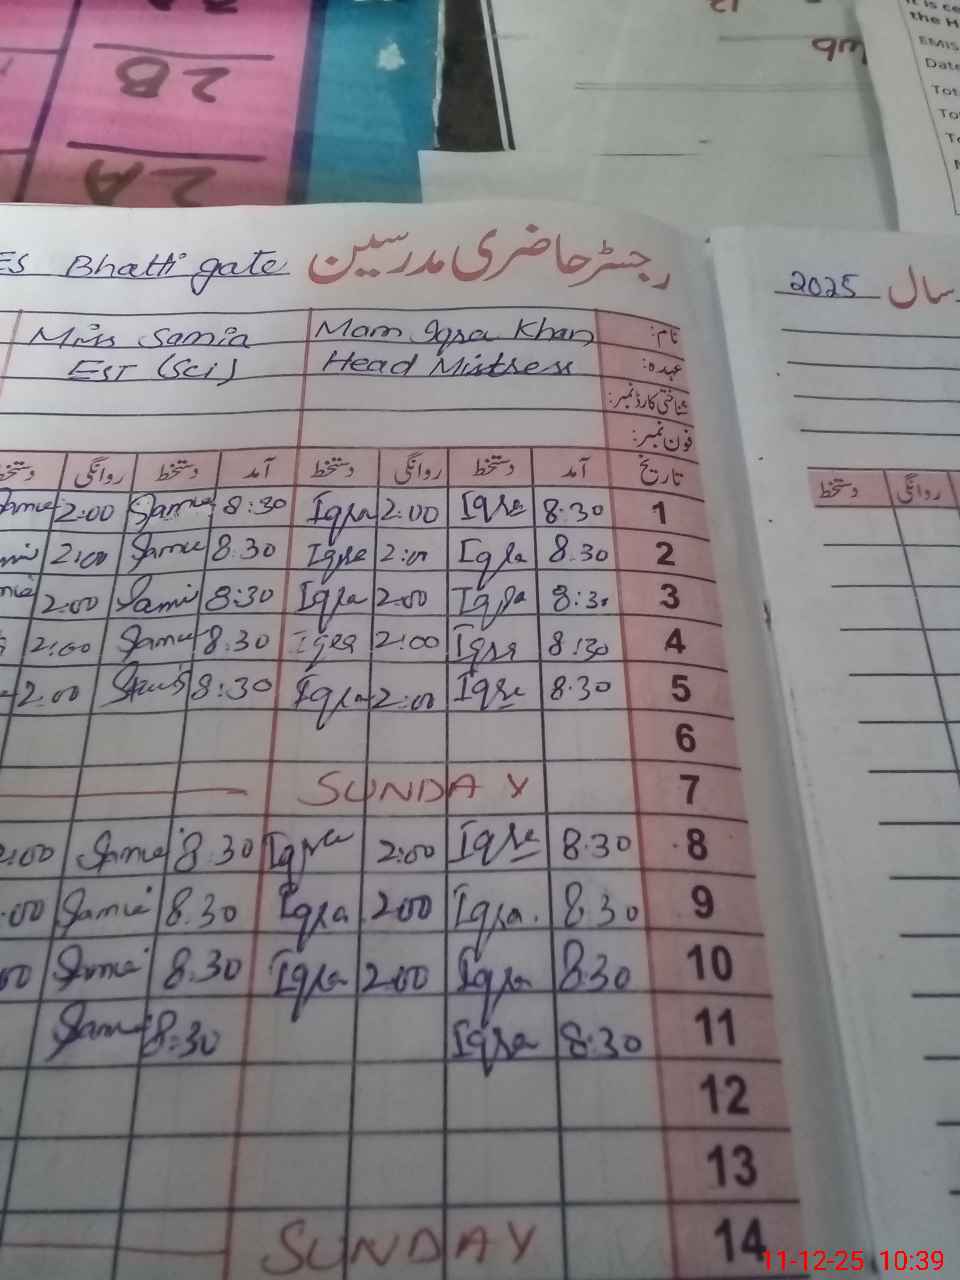 2B
2A
It is ce
the H
EMIS
Date
Tot
ES Bhatti gate رجسٹر حاضری مدرسین
2025 سال
Miss Samia Mam Iqra Khan نام:
EST (Sci) Head Mistress عہدہ:
شناختی کارڈ نمبر:
فون نمبر:
دستخط روانگی دستخط آمد دستخط روانگی دستخط آمد تاریخ
دستخط روانگی
2:00 Samia 8:30 Iqra 2:00 Iqra 8:30 1
2:00 Samia 8.30 Iqra 2:00 Iqra 8.30 2
2:00 Samia 8:30 Iqra 2:00 Iqra 8:30 3
2:00 Samia 8.30 Iqra 2:00 Iqra 8:30 4
2:00 8:30 Iqra 2:00 Iqra 8.30 5
6
SUNDAY 7
2:00 Samia 8.30 Iqra 2:00 Iqra 8.30 8
00 Samia 8.30 Iqra 2:00 Iqra. 8.30 9
00 Samia 8.30 Iqra 2:00 Iqra 8.30 10
Samia 8:30 Iqra 8.30 11
12
13
SUNDAY 14
11-12-25 10:39